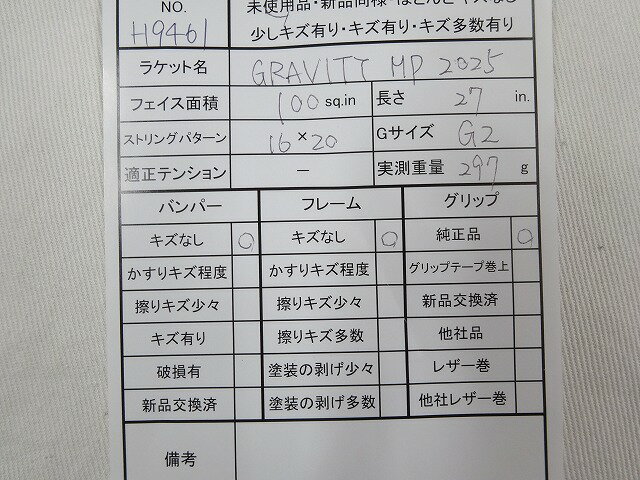 NO. 未使用品・新品同様・ほとんどキズなし
H9461 少しキズ有り・キズ有り・キズ多数有り
ラケット名 GRAVITY MP 2025
フェイス面積 100 sq.in 長さ 27 in.
ストリングパターン 16×20 Gサイズ G2
適正テンション － 実測重量 297 g
バンパー フレーム グリップ
キズなし ○ キズなし ○ 純正品 ○
かすりキズ程度 かすりキズ程度 グリップテープ巻上
擦りキズ少々 擦りキズ少々 新品交換済
キズ有り 擦りキズ多数 他社品
破損有 塗装の剥げ少々 レザー巻
新品交換済 塗装の剥げ多数 他社レザー巻
備考